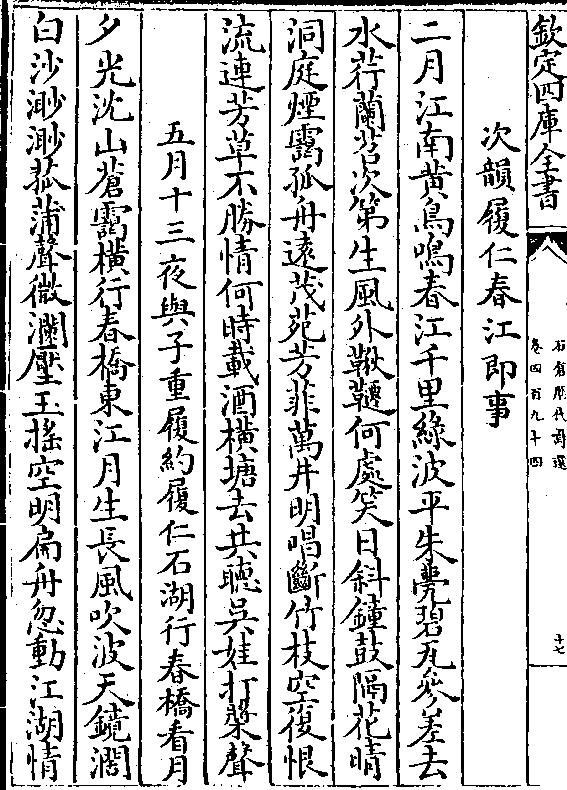 欽定四庫全書
石倉歷代詩選
卷四百九十四
十七
次韻履仁春江即事
二月江南黃鳥鳴春江千里綠波平朱甍碧瓦參差去
水荇蘭苕次第生風外鞦韆何處笑日斜鐘鼓隔花晴
洞庭煙靄孤舟遠茂苑芳菲萬井明唱斷竹枝空復恨
流連芳草不勝情何時載酒橫塘去共聽吳娃打槳聲
五月十三夜與子重履約履仁石湖行春橋看月
夕光沈山蒼靄橫行春橋東江月生長風吹波天鏡濶
白沙渺渺菰蒲聲微瀾壓玉搖空明扁舟忽動江湖情